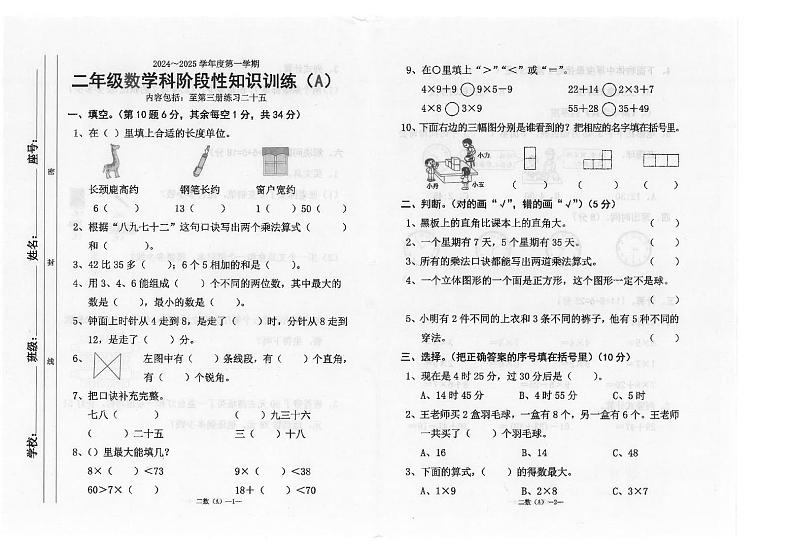 2024～2025 学年度第一学期
二年级数学科阶段性知识训练（A）
内容包括：至第三册练习二十五
一、填空。（第 10 题 6 分，其余每空 1 分，共 34 分）
1、在（ ）里填上合适的长度单位。
长颈鹿高约 钢笔长约 窗户宽约
6（ ） 13（ ） 1（ ）50（ ）
2、根据“八九七十二”这句口诀写出两个乘法算式（ ）
和（ ）。
3、42 比 35 多（ ）；6 个 5 相加的和是（ ）。
4、用 3、4、6 能组成（ ）个不同的两位数，其中最大的
数是（ ），最小的数是（ ）。
5、钟面上时针从 4 走到 8，是走了（ ）时，分针从 8 走到
12，是走了（ ）分。
6、 左图中有（ ）条线段，有（ ）个直角，
有（ ）个锐角。
7、把口诀补充完整。
七八（ ） （ ）九三十六
（ ）二十五 三（ ）十八
8、（）里最大能填几？
8×（ ）<73 9×（ ）<38
60>7×（ ） 18+（ ）<70
二数（A）—1—
座号：
姓名：
班级：
学校：
密
封
线
9、在○里填上“>”“<”或“=”。
4×9+9○9×5-9 22+14○2×3+7
4×8○3×9 55+28○35+49
10、下面右边的三幅图分别是谁看到的？把相应的名字填在括号里。
小力
小丹 小玉 （ ） （ ） （ ）
二、判断。（对的画“√”，错的画“√”）（5 分）
1、黑板上的直角比课本上的直角大。 （ ）
2、一个星期有 7 天，5 个星期有 35 天。 （ ）
3、所有的乘法口诀都能写出两道乘法算式。 （ ）
4、一个立体图形的一个面是正方形，这个图形一定不是球。
（ ）
5、小明有 2 件不同的上衣和 3 条不同的裤子，他有 5 种不同的
穿法。 （ ）
三、选择。（把正确答案的序号填在括号里）（10 分）
1、现在是 4 时 25 分，过 30 分后是（ ）。
A、14 时 45 分 B、4 时 55 分 C、5 时
2、王老师买 2 盒羽毛球，一盒有 8 个，另一盒有 6 个。王老师
一共买了（ ）个羽毛球。
A、16 B、14 C、48
3、下面的算式，（ ）的得数最大。
A、1×9 B、2×8 C、3×7
二数（A）—2—